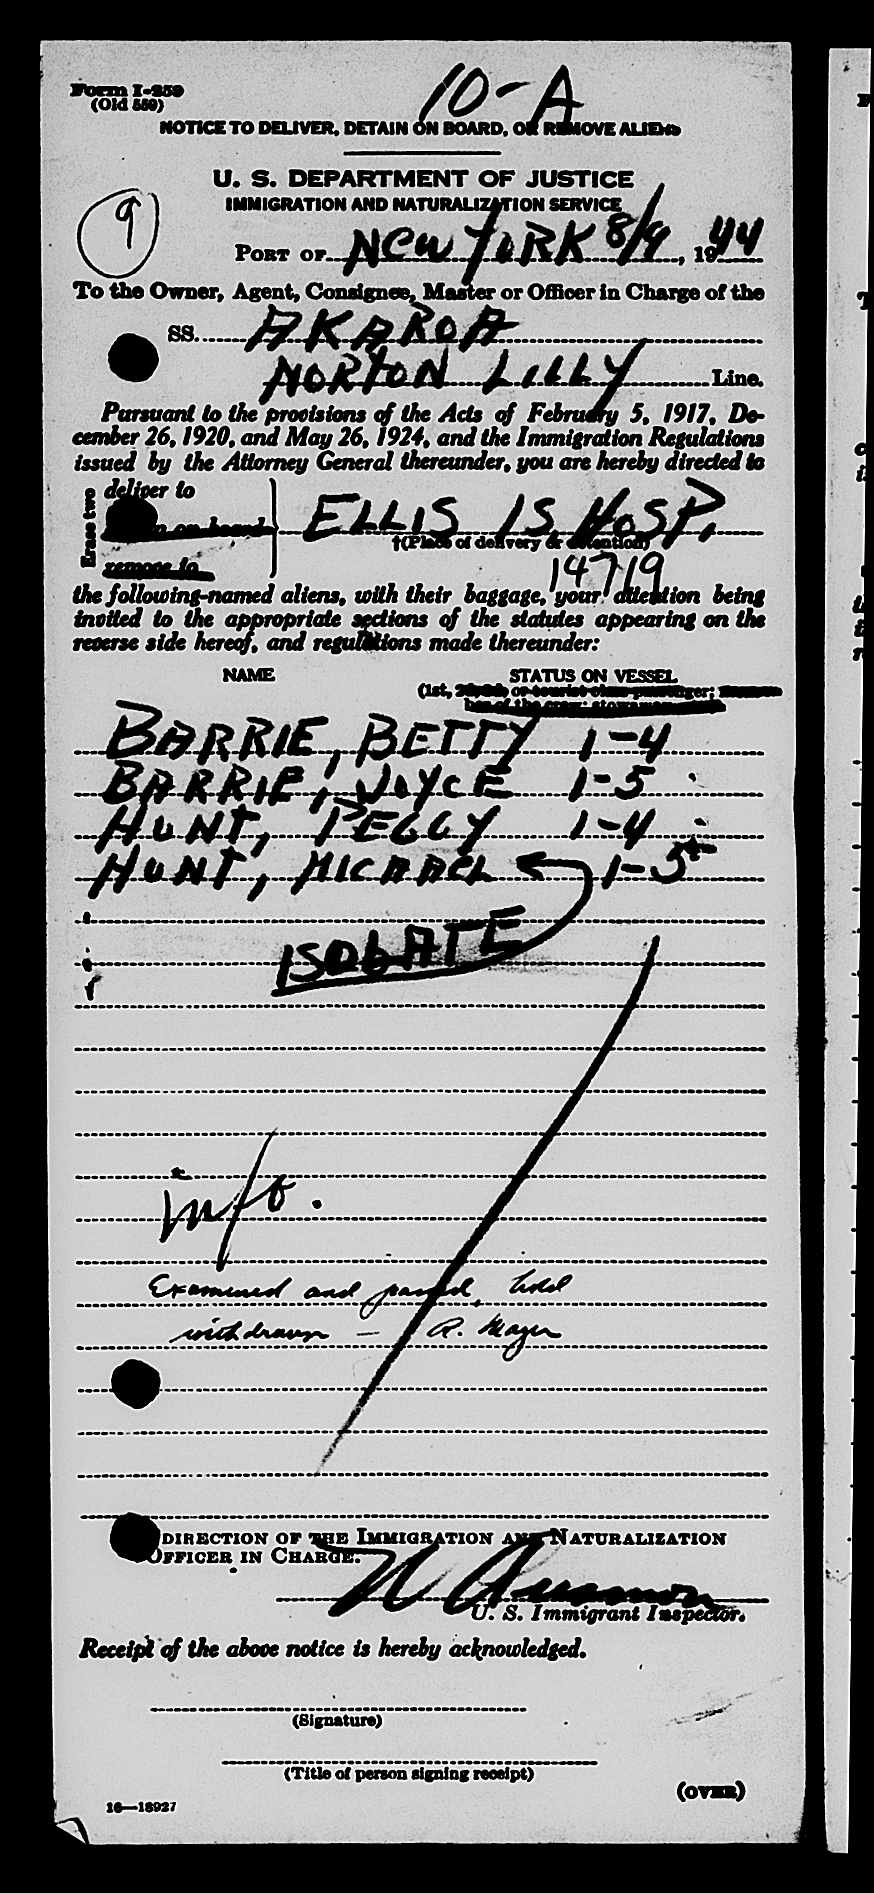 10-A
Form I-259
(Old 559)
NOTICE TO DELIVER, DETAIN ON BOARD, OR REMOVE ALIENS
U. S. DEPARTMENT OF JUSTICE
IMMIGRATION AND NATURALIZATION SERVICE
9
PORT OF NEW YORK 8/9, 1944
To the Owner, Agent, Consignee, Master or Officer in Charge of the
SS. AKAROA
NORTON LILLY Line.
Pursuant to the provisions of the Acts of February 5, 1917, De-
cember 26, 1920, and May 26, 1924, and the Immigration Regulations
issued by the Attorney General thereunder, you are hereby directed to
Erase two
deliver to
on board
ELLIS IS. HOSP.
†(Place of delivery or detention)
remove to
14719
the following-named aliens, with their baggage, your attention being
invited to the appropriate sections of the statutes appearing on the
reverse side hereof, and regulations made thereunder:
NAME STATUS ON VESSEL
(1st, 2d cab. or tourist class passenger; mem-
ber of the crew; stowaway, etc.)
BARRIE, BETTY 1-4
BARRIE, JOYCE 1-5
HUNT, PEGGY 1-4
HUNT, MICHAEL 1-5
ISOLATE
Examined and passed, hold
withdrawn — R. Mayer
DIRECTION OF THE IMMIGRATION AND NATURALIZATION
OFFICER IN CHARGE.
U. S. Immigrant Inspector.
Receipt of the above notice is hereby acknowledged.
(Signature)
(Title of person signing receipt)
16—18927
(OVER)